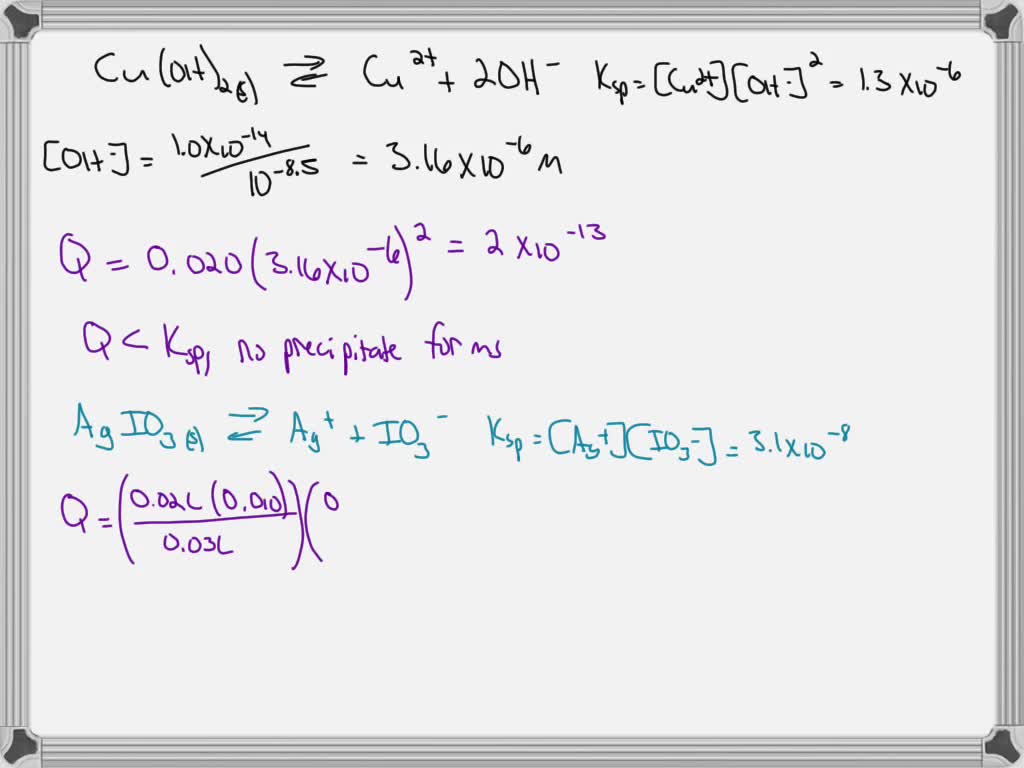 Cu(OH)₂(s) ⇌ Cu²⁺ + 2OH⁻ Ksp = [Cu²⁺][OH⁻]² = 1.3 x10⁻⁶
[OH⁻] = 1.0x10⁻¹⁴ / 10⁻⁸·⁵ = 3.16 x10⁻⁶ M
Q = 0.020(3.16x10⁻⁶)² = 2 x10⁻¹³
Q < Ksp, no precipitate forms
AgIO₃(s) ⇌ Ag⁺ + IO₃⁻ Ksp = [Ag⁺][IO₃⁻] = 3.1x10⁻⁸
Q = (0.02L (0.010) / 0.03L)(0